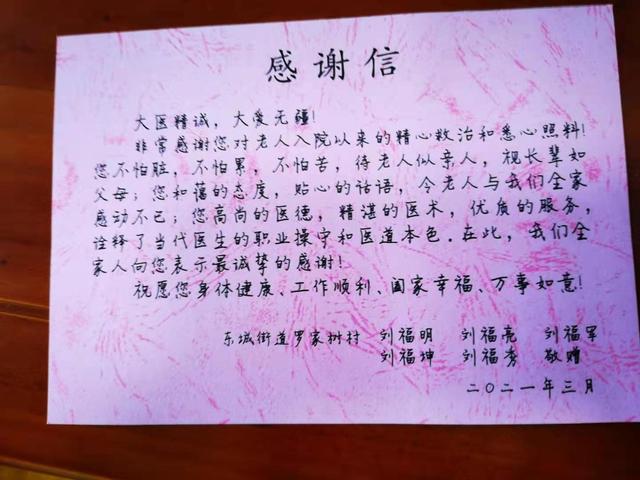 感谢信
大医精诚，大爱无疆！
非常感谢您对老人入院以来的精心救治和悉心照料！
您不怕脏，不怕累，不怕苦，待老人似亲人，视长辈如
父母；您和蔼的态度，贴心的话语，令老人与我们全家
感动不已；您高尚的医德，精湛的医术，优质的服务，
诠释了当代医生的职业操守和医道本色．在此，我们全
家人向您表示最诚挚的感谢！
祝愿您身体健康、工作顺利、阖家幸福、万事如意！
东城街道罗家树村 刘福明 刘福亮 刘福军
刘福坤 刘福秀 敬赠
二〇二一年三月